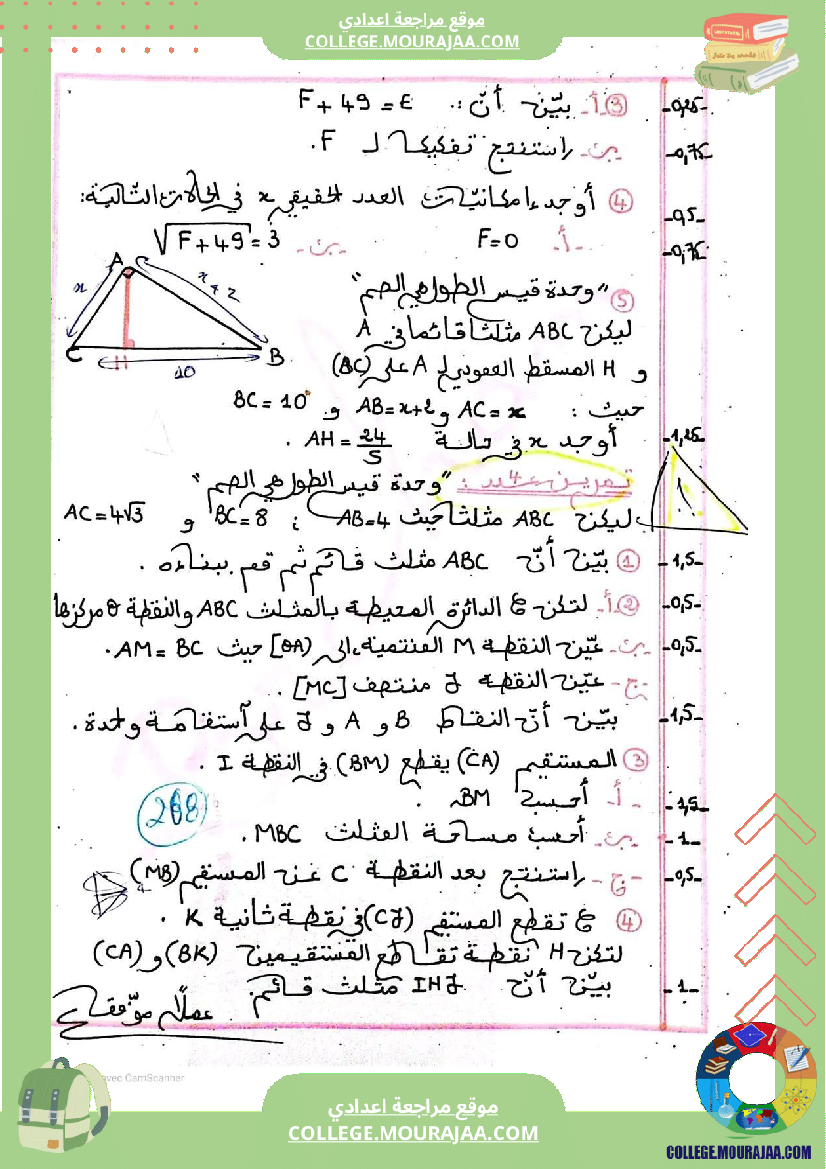 موقع مراجعة اعدادي
COLLEGE.MOURAJAA.COM
③ أ- بيّن أنّ : F + 49 = E -0,25-
ب- استنتج تفكيكا لـ F. -0,75-
④ أوجد إمكانيّات العدد الحقيقي x في الحالات التّالية: -0,5-
أ- F=0 ب- √F+49 = 3 -0,75-
A x x+2 C H B 10
⑤ "وحدة قيس الطول هي الصم"
ليكن ABC مثلثا قائما في A
و H المسقط العمودي لـ A على (BC)
حيث : AC = x و AB = x+2 و BC = 10
أوجد x في حالة AH = 24/5 . -1,25-
تمرين عـ4ـدد : "وحدة قيس الطول هي الصم"
ليكن ABC مثلثا حيث AB=4 ; BC=8 و AC=4√3
① بيّن أنّ ABC مثلث قائم ثم قم ببناءه . -1,5-
② أ- لتكن ع الدائرة المحيطة بالمثلث ABC والنقطة O مركزها -0,5-
ب- عيّن النقطة M المنتمية إلى [OA) حيث AM = BC. -0,5-
ج- عيّن النقطة J منتصف [MC] .
بيّن أنّ النقاط B و A و J على استقامة واحدة . -1,5-
③ المستقيم (CA) يقطع (BM) في النقطة I .
أ- أحسب BM . -1,5-
ب- أحسب مساحة المثلث MBC . -1-
ج- استنتج بعد النقطة C عن المستقيم (MB) -0,5-
268
④ ع تقطع المستقيم (CJ) في نقطة ثانية K .
لتكن H نقطة تقاطع المستقيمين (BK) و (CA)
بيّن أنّ IHJ مثلث قائم. -1-
عملا موفّقا
avec CamScanner
موقع مراجعة اعدادي
COLLEGE.MOURAJAA.COM
COLLEGE.MOURAJAA.COM